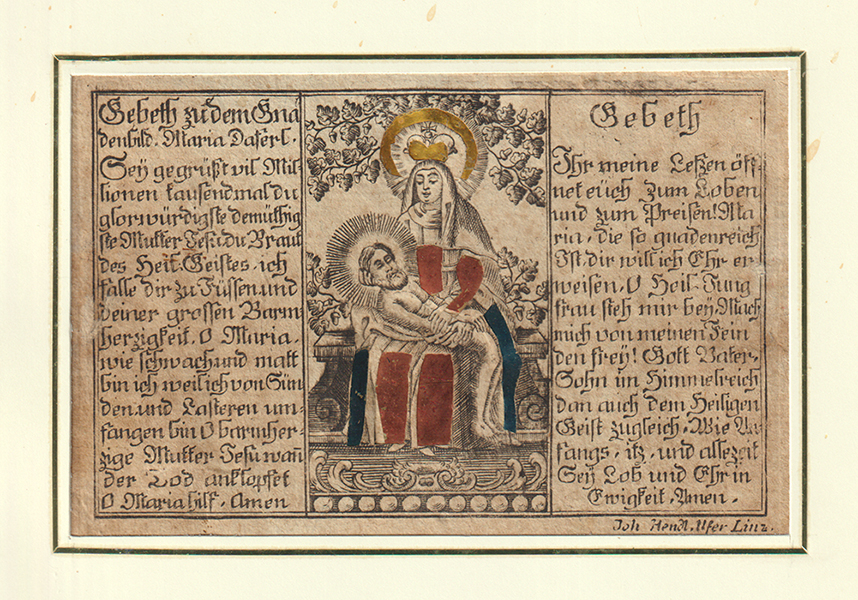 Gebeth zu dem Gna
denbild. Maria Daferl.
Sey gegrüßt vil Mil
lionen tausendmal du
glorwürdigste demüthig
ste Mutter Jesu du Braut
des Heil. Geistes. ich
falle dir zu Füssen und
deiner grossen Barm
herzigkeit. O Maria,
wie schwach und matt
bin ich weil ich von Sün
den und Lasteren um-
fangen bin O barmher-
zige Mutter Jesu wañ
der Tod anklopfet
O Maria hilf. Amen
Gebeth
Ihr meine Leßzen öff-
net eüch zum Loben
und zum Preisen! Ma
ria, die so gnadenreich
Ist, dir will ich Ehr er
weisen. O Heil. Jung
frau steh mir bey, Mach
mich von meinen Fein
den frey! Gott Vater,
Sohn im Himmelreich
dan auch dem Heiligen
Geist zugleich, Wie An
fangs, itz, und allezeit
Sey Lob und Ehr in
Ewigkeit, Amen.
Joh Hendl. Ufer Linz.